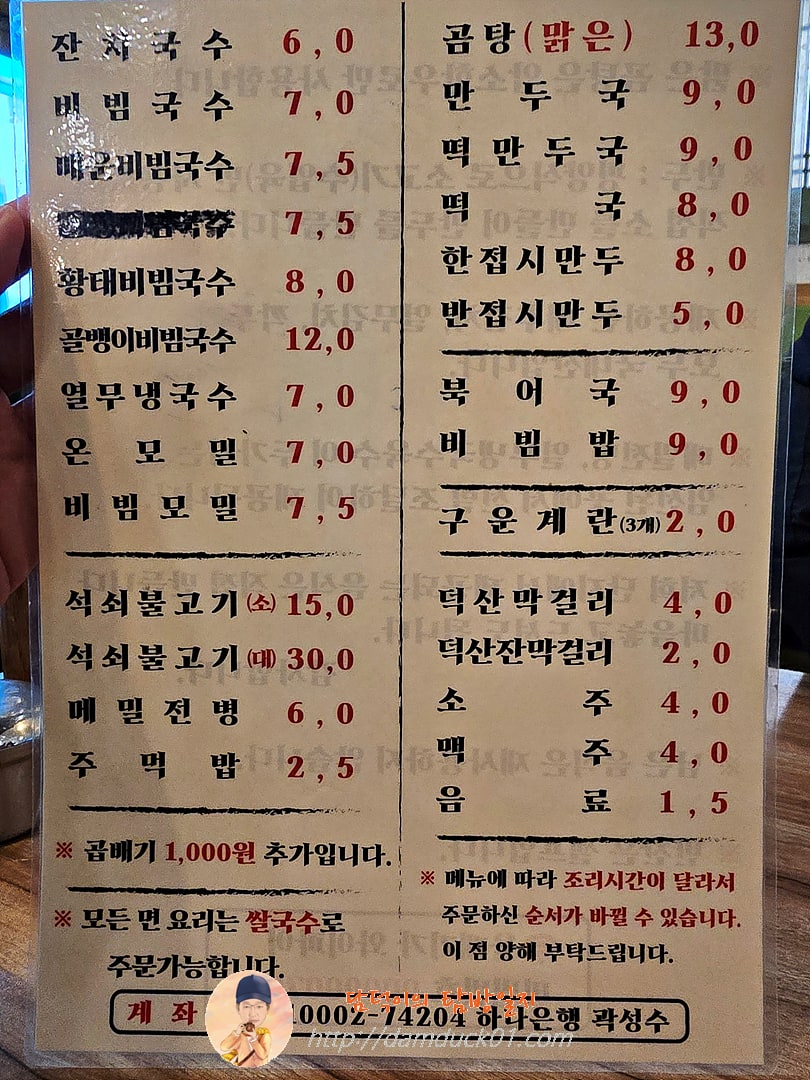 잔치국수 6,0
비빔국수 7,0
매운비빔국수 7,5
비빔국수 7,5
황태비빔국수 8,0
골뱅이비빔국수 12,0
열무냉국수 7,0
온모밀 7,0
비빔모밀 7,5
석쇠불고기(소) 15,0
석쇠불고기(대) 30,0
메밀전병 6,0
주먹밥 2,5
※ 곱배기 1,000원 추가입니다.
※ 모든 면 요리는 쌀국수로
주문가능합니다.
곰탕(맑은) 13,0
만두국 9,0
떡만두국 9,0
떡국 8,0
한접시만두 8,0
반접시만두 5,0
북어국 9,0
비빔밥 9,0
구운계란(3개) 2,0
덕산막걸리 4,0
덕산잔막걸리 2,0
소주 4,0
맥주 4,0
음료 1,5
※ 메뉴에 따라 조리시간이 달라서
주문하신 순서가 바뀔 수 있습니다.
이 점 양해 부탁드립니다.
계좌 10002-74204 하나은행 곽성수
담덕이의 탐방일지
http://damduck01.com